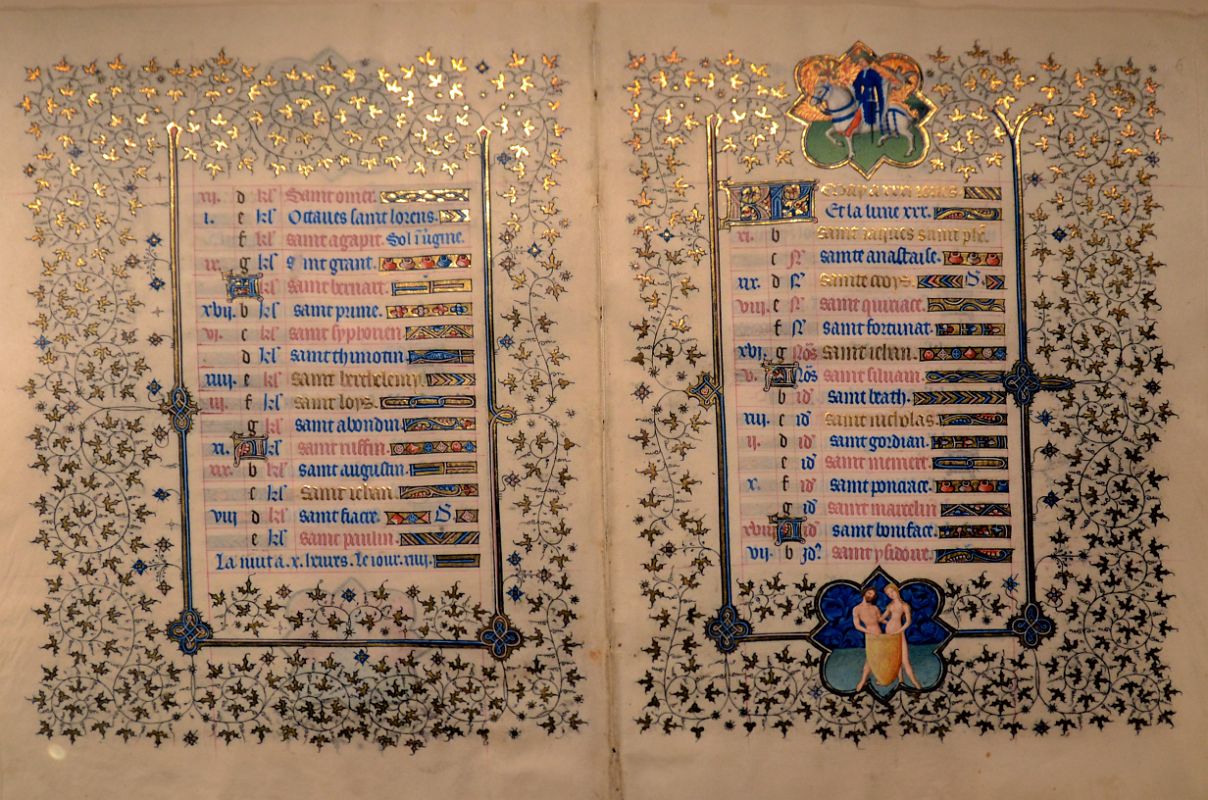 xij. d kl' Saint omer.
i. e kl' Octaues saint lorens.
f kl' saint agapit. Sol i uirgine.
ix. g kl' S int grant.
A kl' saint bernart.
xvij. b kl' saint prime.
vj. c kl' saint syphorien
d kl' saint thimotin
xiiij. e kl' saint berthelemy.
iij. f kl' saint loys.
g kl' saint abondin
xj. A kl' saint ruffin.
xix. b kl' saint augustin.
c kl' saint iehan
viij d kl' saint fiacre. D
e kl' saint paulin.
La nuit a .x. heures. Le iour .xiiij.
KL May a xxxi iours.
Et la lune xxx.
xj. b saint iaques saint phe.
c N. sainte anastaise.
xix. d N. sainte croys. D.
viij. e N. saint quiriace.
f N. saint fortunat.
xvj. g Nōs saint iehan.
v. A Nōs saint siluain.
b id' saint beath.
xiij. c id' saint nicholas.
ij. d id' saint gordian.
e id' saint memere.
x. f id' saint ponciace.
g id' saint marcelin
xviij A id' saint boniface.
vij. b jd' saint ysidoire.